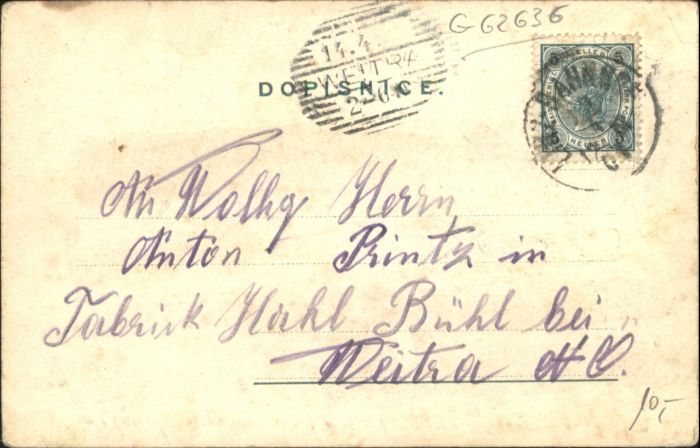 G 62636
14.4
WEITRA
DOPISNICE.
5 HELLER 5
HELLER
An Wolhg Herrn
Anton Printz in
Fabrick Hackl Bühl bei
Weitra N. O.
10,-